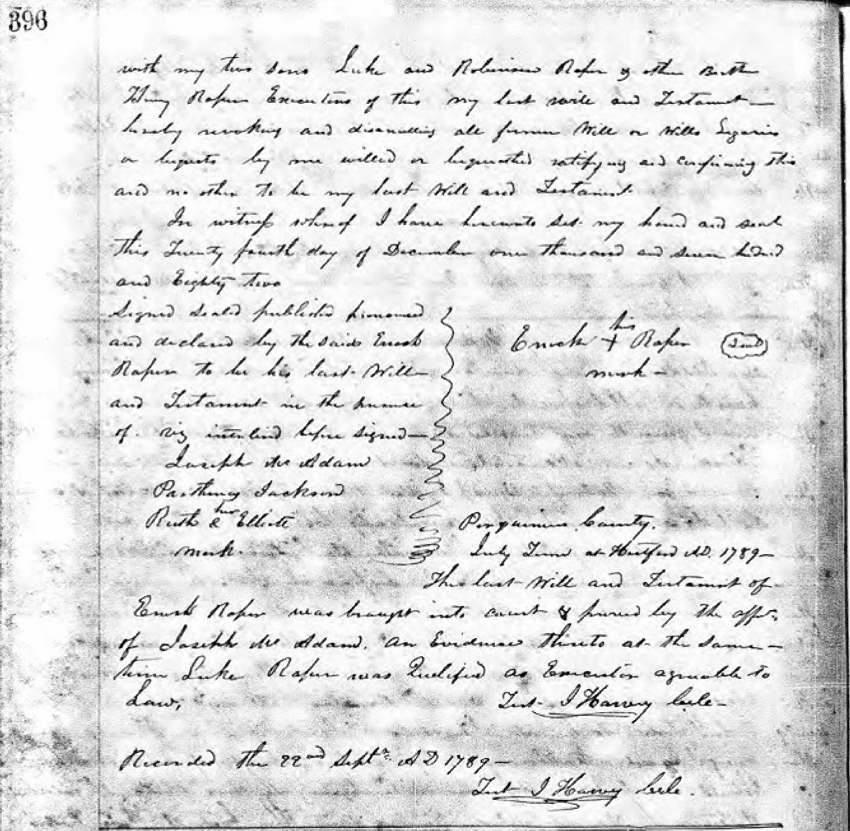 396
with my two sons Luke and Robinson Raper & other Broth
Henry Raper Executors of this my last will and Testament
hereby revoking and disanulling all former Will or Wills Legacies
or bequests by me willed or bequeathed ratifying and confirming this
and no other to be my last Will and Testament
In witness whereof I have hereunto set my hand and seal
this Twenty fourth day of December one thousand and seven hundred
and Eighty two
Signed sealed published pronounced
and declared by the said Enock
Raper to be his last Will
and Testament in the presence
of viz interlined before signed
Enock his + Raper Seal
mark
Joseph Mc Adam
Parthena Jackson
Ruth her Elliott
mark
Perquimans County.
July Term at Hertford AD. 1789
This last Will and Testament of
Enock Raper was brought into court & proved by the
of Joseph Mc Adam, an Evidence thereto at the same
time Luke Raper was Qualified as Executor agreeable to
Law,
Test J Harvey Clk
Recorded the 22nd Septr AD 1789
Test J Harvey Clk.